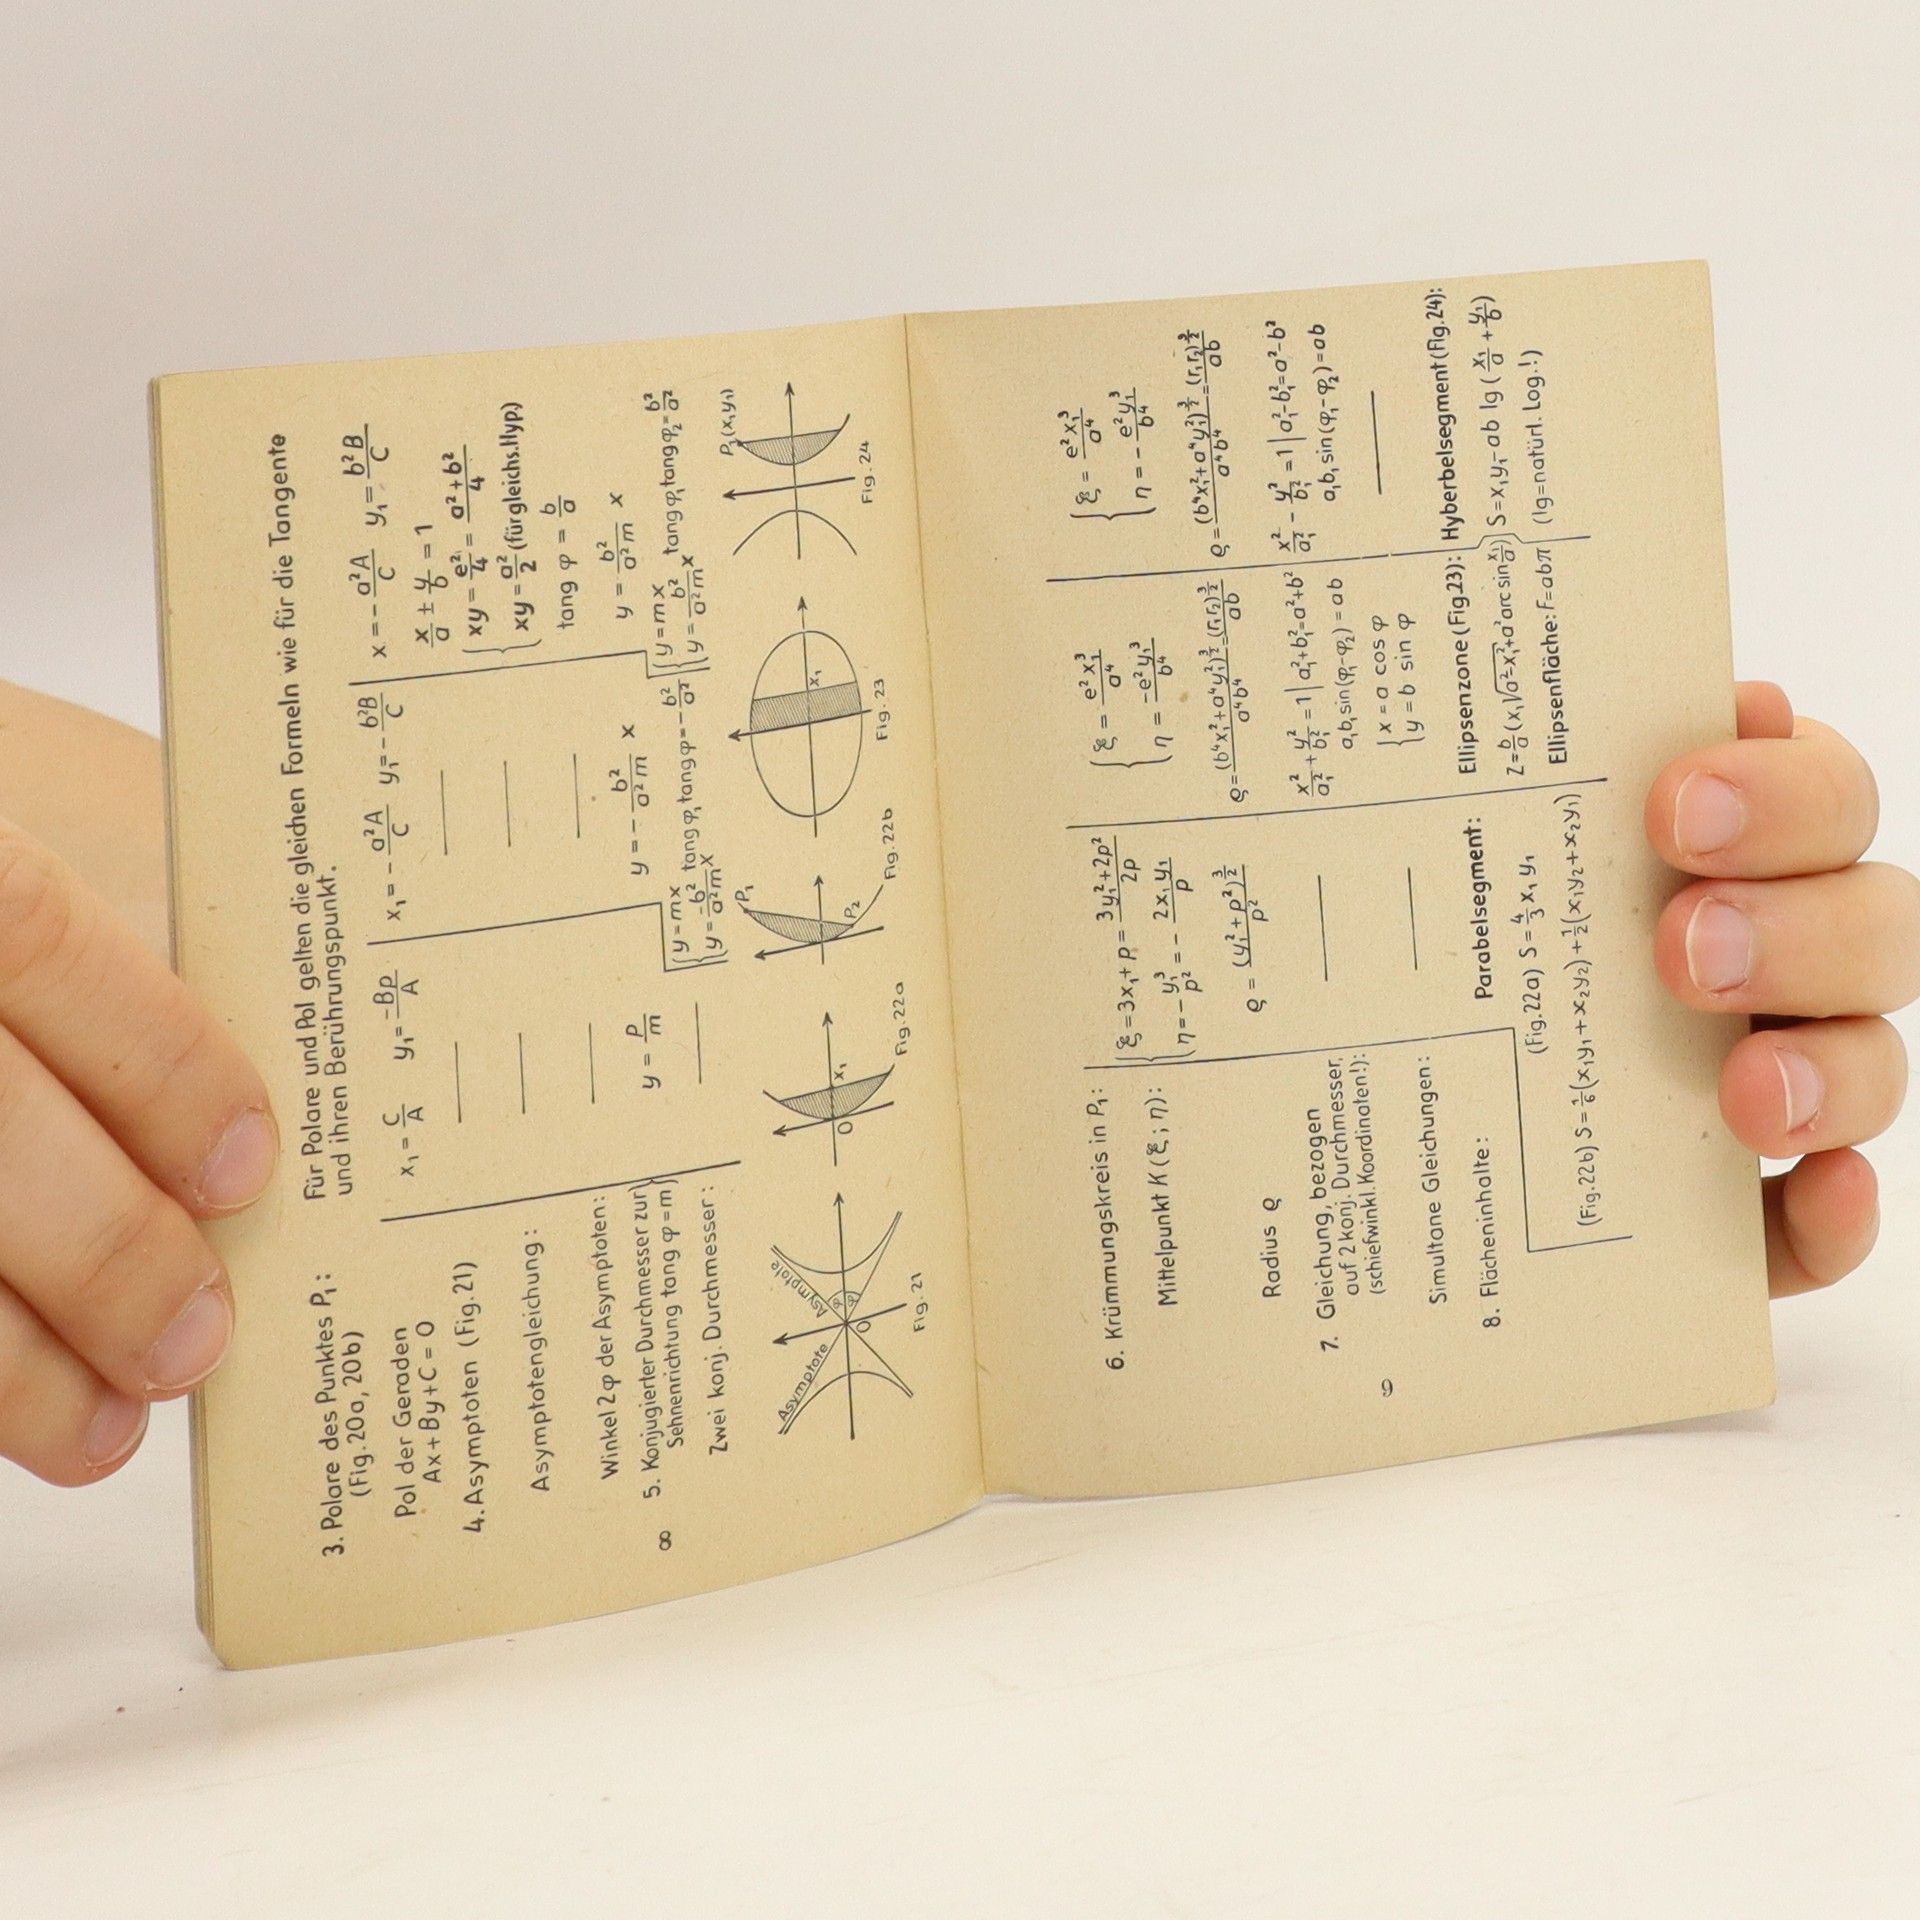 Für Polare und Pol gelten die gleichen Formeln wie für die Tangente
und ihren Berührungspunkt.
3. Polare des Punktes P₁:
(Fig. 20a, 20b)
Pol der Geraden
Ax + By + C = 0
x₁ = C/A   y₁ = -Bp/A
x₁ = - a²A/C   y₁ = - b²B/C
x = - a²A/C   y₁ = b²B/C
4. Asymptoten (Fig. 21)
x/a ± y/b = 1
Asymptotengleichung:
{ xy = e²/4 = a² + b²/4
xy = a²/2 (für gleichs. Hyp.)
Winkel 2φ der Asymptoten:
tang φ = b/a
5. Konjugierter Durchmesser zur
Sehnenrichtung tang φ = m}
y = p/m
y = - b²/a²m x
y = b²/a²m x
Zwei konj. Durchmesser:
{ y = mx
y = -b²/a²m x   tang φ₁ tang φ = - b²/a²
{ y = mx
y = b²/a²m x   tang φ₁ tang φ₂ = b²/a²
Asymptote
Asymptote
φ φ
O
Fig. 21
O
x₁
Fig. 22a
P₁
P₂
Fig. 22b
x₁
Fig. 23
P₁(x₁y₁)
Fig. 24
8
6. Krümmungskreis in P₁:
Mittelpunkt K (ξ; η):
{ ξ = 3x₁ + p = 3y₁² + 2p²/2p
η = - y₁³/p² = - 2x₁y₁/p
{ ξ = e²x₁³/a⁴
η = -e²y₁³/b⁴
{ ξ = e²x₁³/a⁴
η = - e²y₁³/b⁴
Radius ϱ
ϱ = (y₁² + p²)^3/2/p²
ϱ = (b⁴x₁² + a⁴y₁²)^3/2/a⁴b⁴ = (r₁r₂)^3/2/ab
ϱ = (b⁴x₁² + a⁴y₁²)^3/2/a⁴b⁴ = (r₁r₂)^3/2/ab
7. Gleichung, bezogen
auf 2 konj. Durchmesser,
(schiefwinkl. Koordinaten!):
x²/a₁² + y²/b₁² = 1 | a₁² + b₁² = a² + b²
a₁b₁ sin(φ₁-φ₂) = ab
x²/a₁² - y²/b₁² = 1 | a₁² - b₁² = a² - b²
a₁b₁ sin(φ₁-φ₂) = ab
Simultane Gleichungen:
{ x = a cos φ
y = b sin φ
8. Flächeninhalte:
Parabelsegment:
(Fig. 22a) S = 4/3 x₁y₁
(Fig. 22b) S = 1/6(x₁y₁ + x₂y₂) + 1/2(x₁y₂ + x₂y₁)
Ellipsenzone (Fig. 23):
Z = b/a (x₁√a²-x₁² + a² arc sin x₁/a)
Ellipsenfläche: F = abπ
Hyberbelsegment (Fig. 24):
S = x₁y₁ - ab lg (x₁/a + y₁/b)
(lg = natürl. Log.!)
9